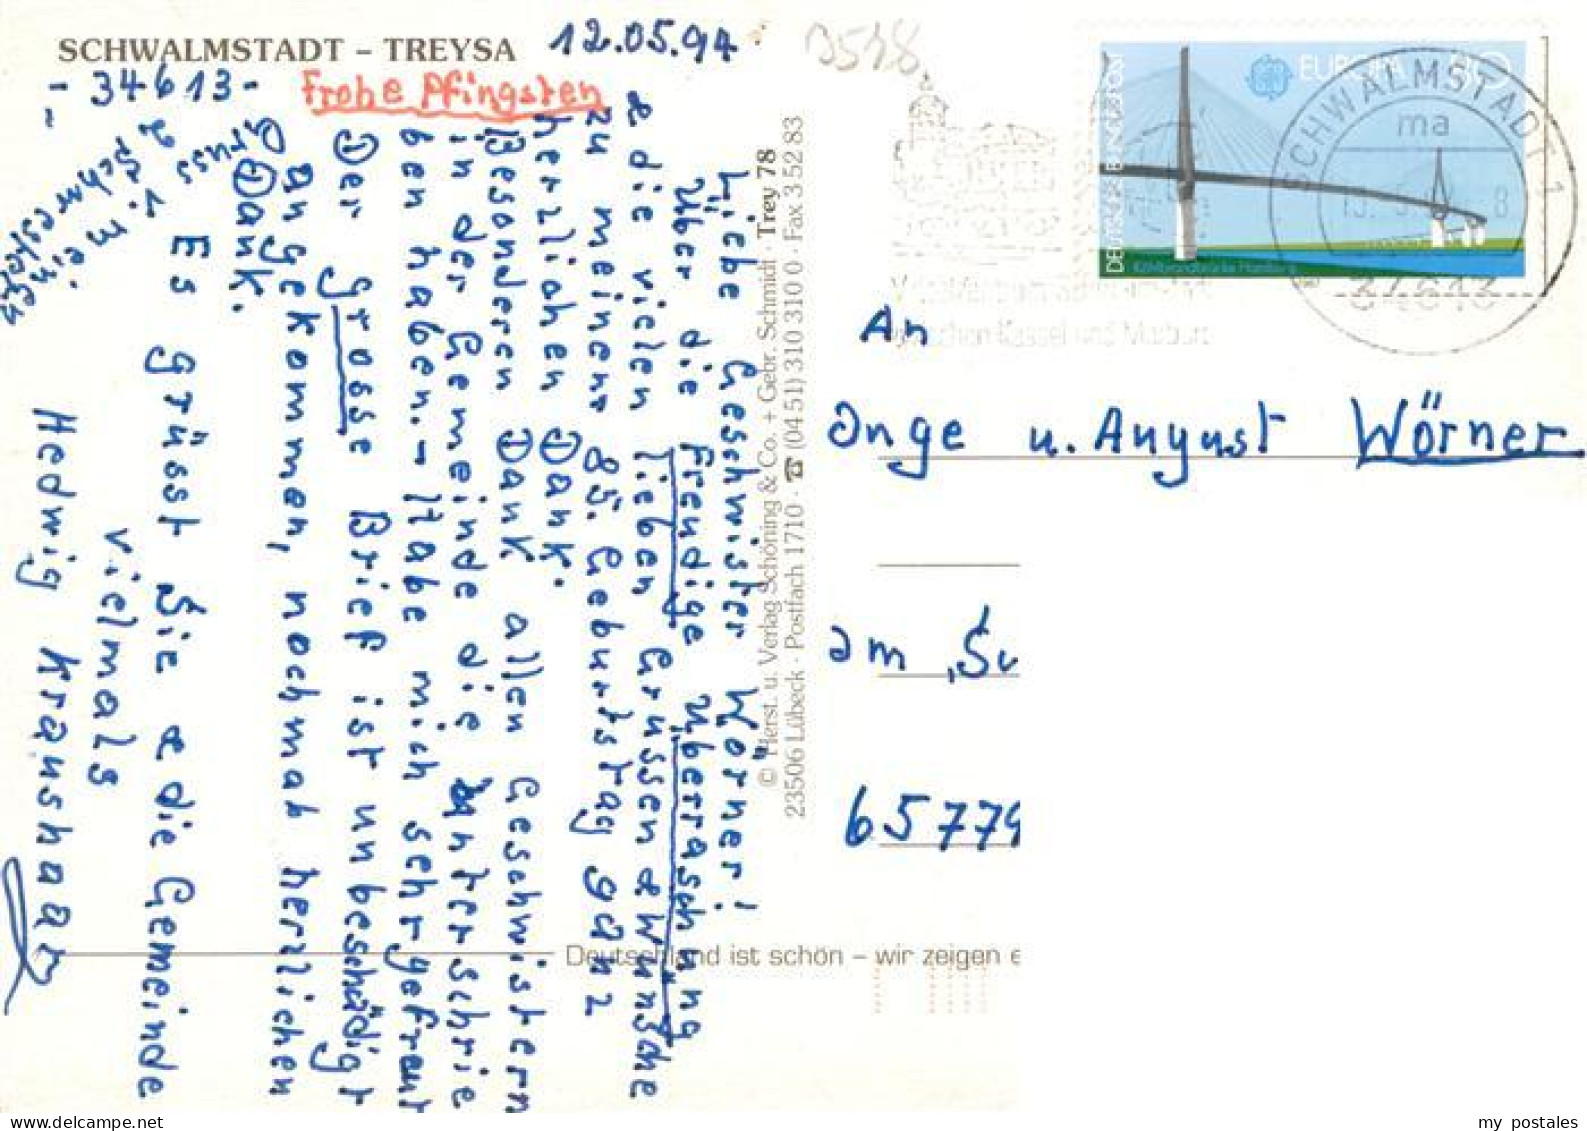 SCHWALMSTADT – TREYSA
12.05.94
- 34613 -
Frohe Pfingsten
Liebe Geschwister Wörner!
Über die Freudige Überraschung
& die vielen lieben Grüssen & Wünsche
zu meinen 85. Geburtstag ganz
herzlichen Dank.
Besonderen Dank allen Geschwistern
in der Gemeinde die unterschrie
ben haben.- Habe mich sehr gefreut
Der grosse Brief ist unbeschädigt
Angekommen, nochmal herzlichen
Dank.
Es grüsst Sie & die Gemeinde
vielmals
Hedwig Kraushaar
Gruss v. meiner
© Herst. u. Verlag Schöning & Co. + Gebr. Schmidt · Trey 78
23506 Lübeck · Postfach 1710 · ☎ (04 51) 310 310 0 · Fax 3 52 83
EUROPA
DEUTSCHE BUNDESPOST
SCHWALMSTADT 1
ma
34613
An
Inge u. August Wörner
am
65779
Deutschland ist schön – wir zeigen e
my postales